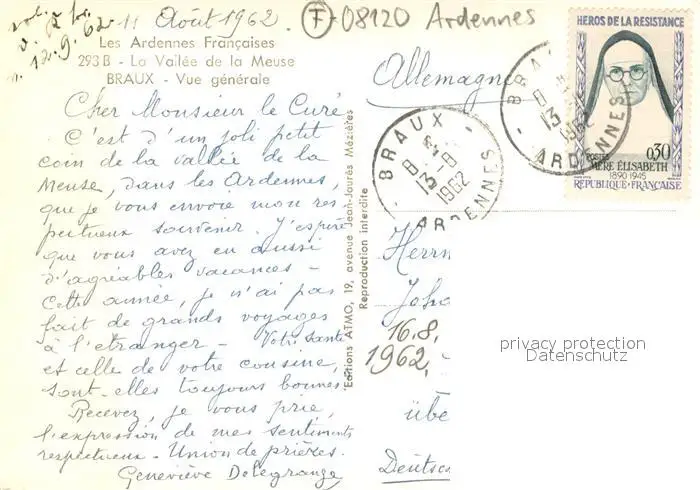 11 Août 1962.
(F)-08120 Ardennes
12.9.62
Les Ardennes Françaises
293 B - La Vallée de la Meuse
BRAUX - Vue générale
Cher Monsieur le Curé
C'est d'un joli petit
coin de la vallée de la
Meuse, dans les Ardennes,
que je vous envoie mon res
pectueux souvenir. J'espère
que vous avez eu aussi
d'agréables vacances -
Cette année, je n'ai pas
fait de grands voyages
à l'etranger - Votre santé
et celle de votre cousine,
sont-elles toujours bonnes
Recevez, je vous prie,
l'expression de mes sentiments
respectueux - Union de prières.
Geneviève Delegrange
Editions ATMO, 19, avenue Jean-Jaurès Mézières
Reproduction interdite
Allemagne
BRAUX
8H45
13-8
1962
ARDENNES
BRAUX
13
1962
ARDENNES
HEROS DE LA RESISTANCE
POSTES
0,30
MÈRE ÉLISABETH
1890 1945
RÉPUBLIQUE·FRANÇAISE
Herrn
Joha
16.8.
1962,
übe
Deutsc
privacy protection
Datenschutz